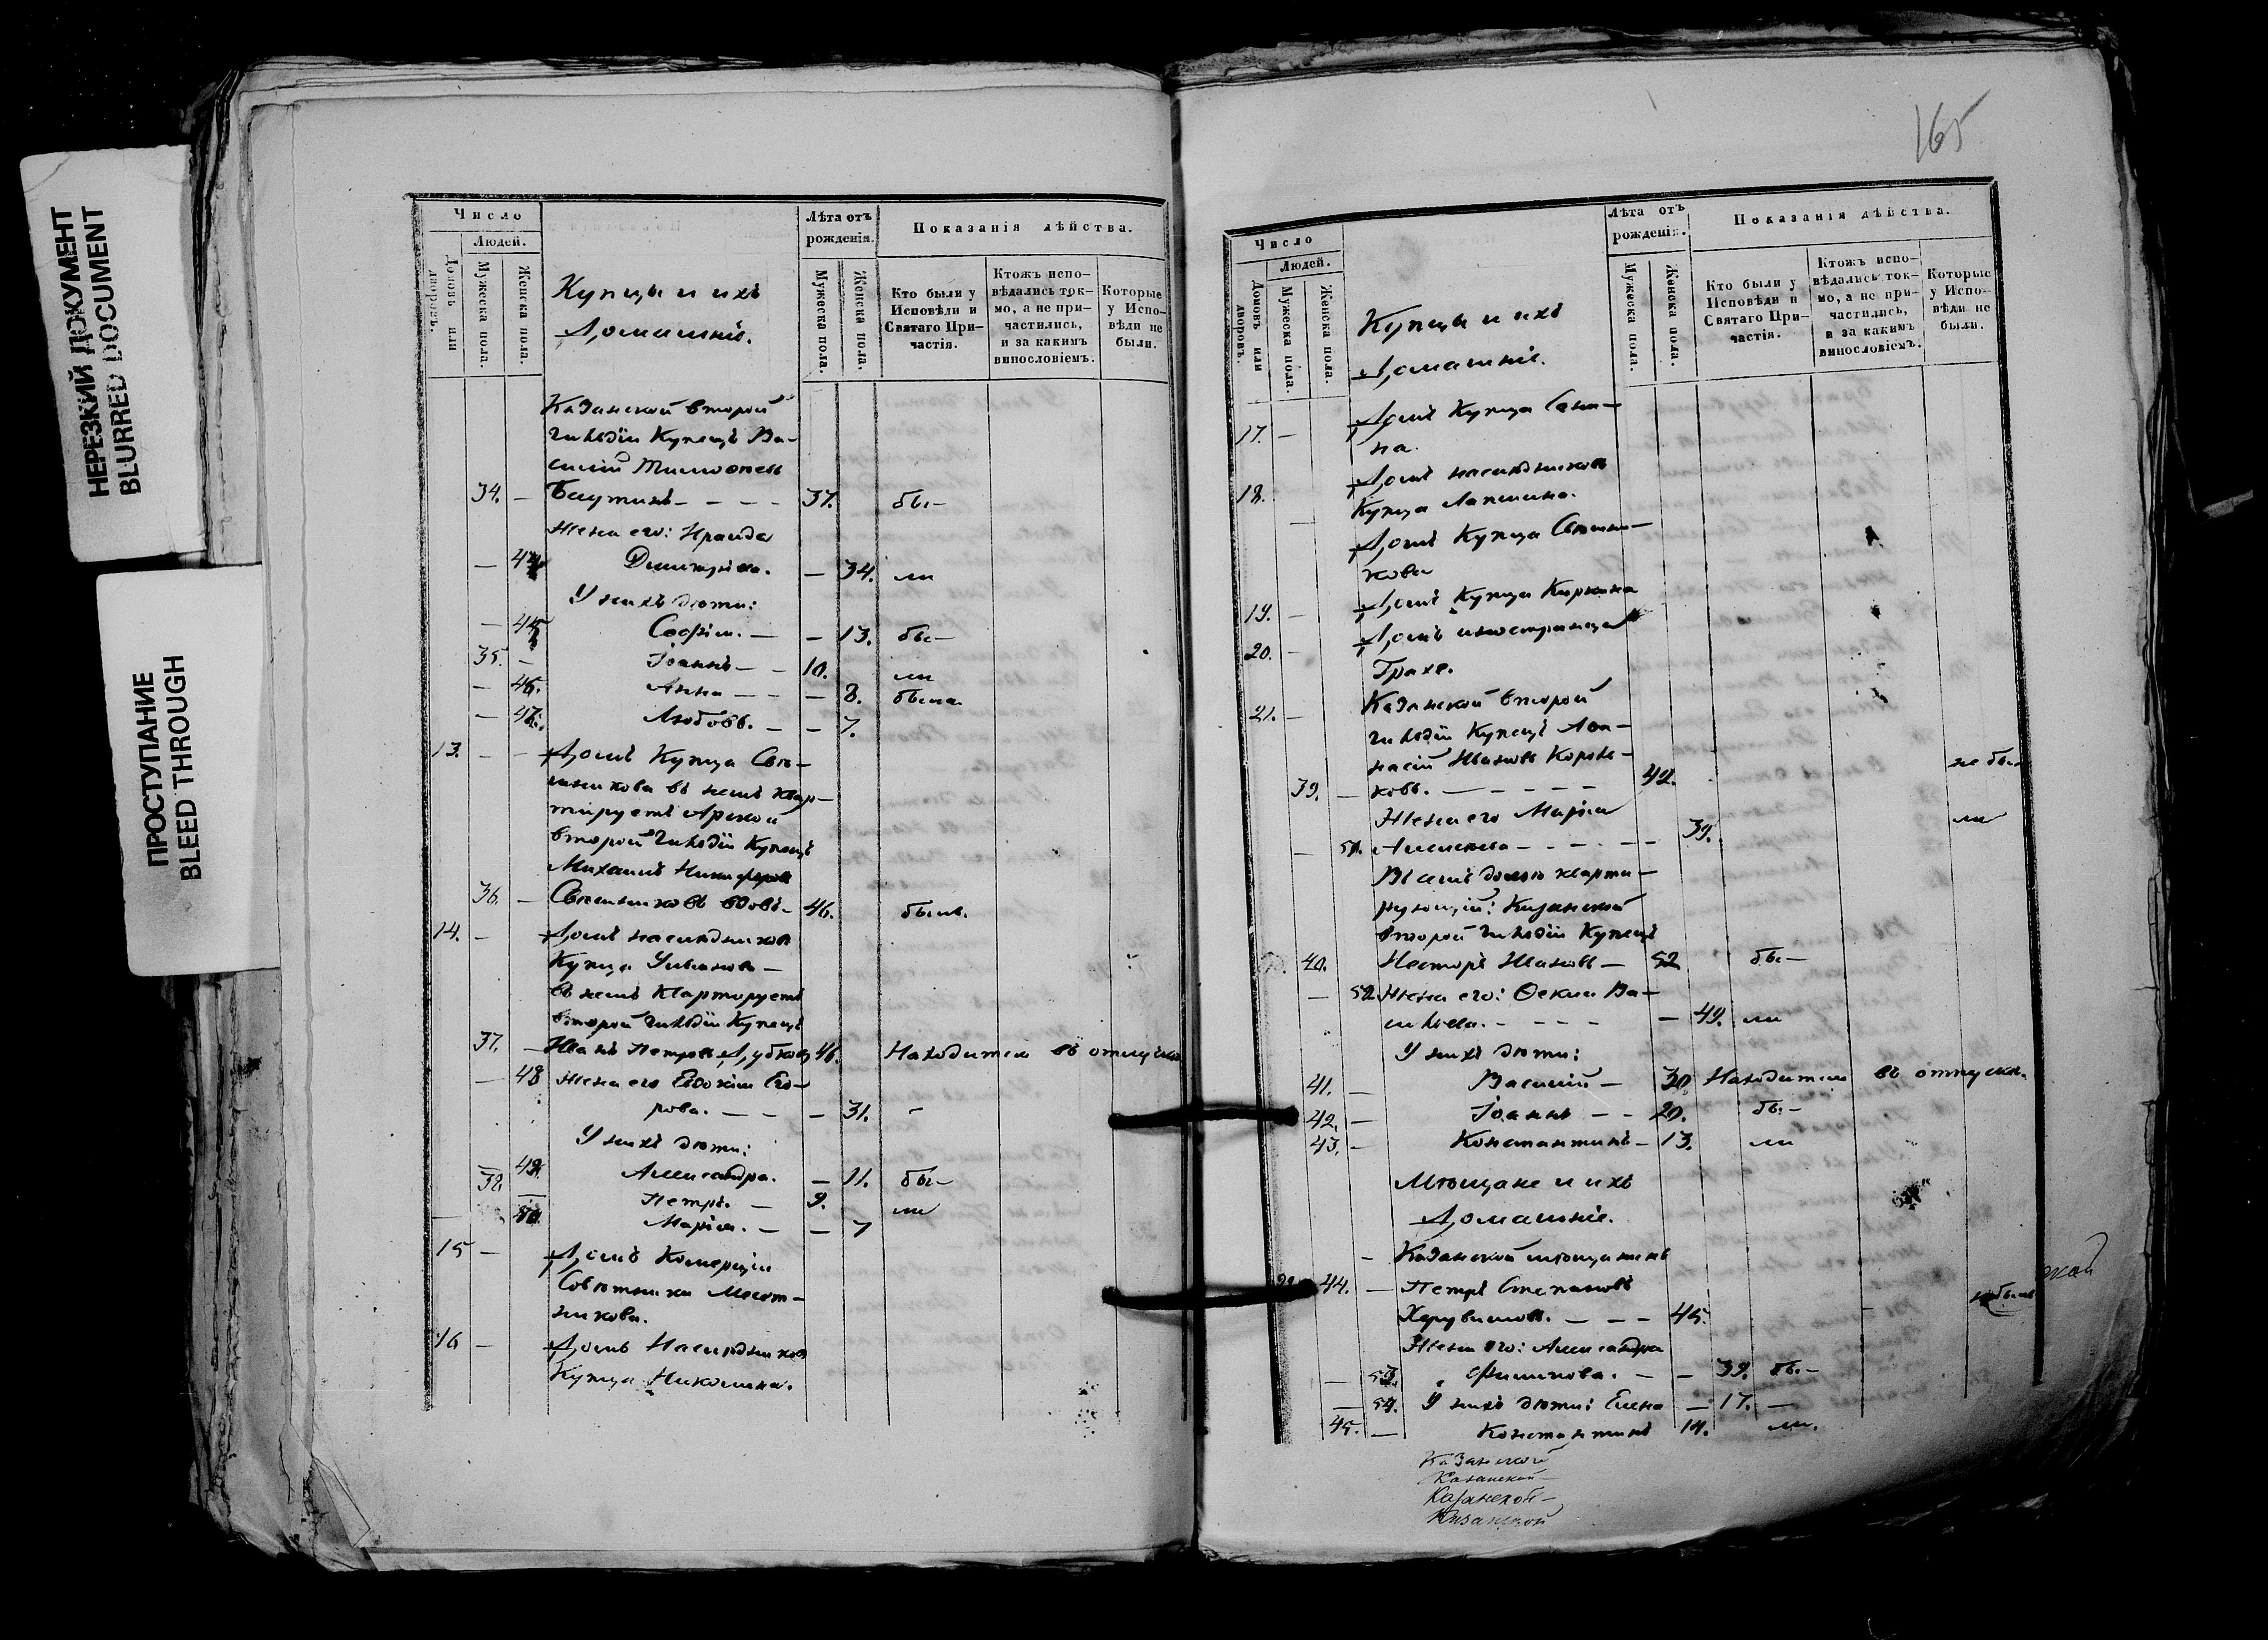 НЕРЕЗКИЙ ДОКУМЕНТ
BLURRED DOCUMENT
ПРОСТУПАНИЕ
BLEED THROUGH
Число
Людей.
Домовъ или дворовъ.
Мужеска пола.
Женска пола.
Купцы и ихъ
Домашніе.
Лѣта отъ
рожденія.
Мужеска пола.
Женска пола.
Показанія дѣйства.
Кто были у
Исповѣди и
Святаго При-
частія.
Ктожъ испо-
вѣдались ток-
мо, а не при-
частились,
и за какимъ
винословіемъ.
Которые
у Испо-
вѣди не
были.
Казанской второй
гильдіи Купецъ Ва-
силій
34. —
37. бы—
Жена его: Ираида
— Димитріева. — 34. ли
У нихъ дѣти:
— Софія. — — 13. бы—
35. — Іоаннъ — — 10. ли
— 46. Анна — — — 8. была
— 47. Любовь. — — 7.
13. — — Домъ Купца Свѣ-
шникова въ немъ квар-
тируетъ Арской
второй гильдіи Купецъ
Михаилъ Никифоровъ
36. — Свѣшниковъ вдовъ — 46. былъ.
14. — Домъ наслѣдниковъ
Купца
въ немъ Квартируетъ
второй гильдіи Купецъ
37. — Иванъ Петровъ Дубковъ 46. Находится въ отлучкѣ
— 48 Жена его Евдокія Его-
рова. — — — 31. —
У нихъ дѣти:
49. Александра. — 11. бы—
38. — Петръ. — 9. ли
— 50. Марія. — — 7
15 — Домъ Комерціи
Совѣтника
16 — Домъ Наслѣдниковъ
Купца Николина.
165
Число
Людей.
Домовъ или дворовъ.
Мужеска пола.
Женска пола.
Купцы и ихъ
Домашніе.
Лѣта отъ
рожденія.
Мужеска пола.
Женска пола.
Показанія дѣйства.
Кто были у
Исповѣди и
Святаго При-
частія.
Ктожъ испо-
вѣдались ток-
мо, а не при-
частились,
и за какимъ
винословіемъ.
Которые
у Испо-
вѣди не
были.
17. — Домъ Купца
на.
18. Домъ наслѣдниковъ
Купца Лапшина.
— Домъ Купца Свѣшни-
кова
19. — Домъ Купца
20. — Домъ иностранца
Грахе.
21. — Казанской второй
гильдіи Купецъ Афа-
насій Ивановъ Король-
39. — ковъ. — — — 42. не бы—
Жена его Марія
— 51. Алексѣева — — — 39. ли
Въ семъ домѣ кварти-
рующій: Казанской
второй гильдіи Купецъ
40. Несторъ Ивановъ — 52 бы—
— 52. Жена его: Ѳекла Ва-
сильева. — — — 49. ли
У нихъ дѣти:
41. — Василій — 30 Находится въ отпускѣ.
42. — Іоаннъ — — 20. бы—
43. — Константинъ — 13. ли
Мѣщане и ихъ
Домашніе.
— Казанской мѣщанинъ
44. — Петръ Степановъ
Херувимовъ. — — — 45. не былъ
Жена его: Александра
— 53. Филипова. — — 39. бы—
— 54. У нихъ дѣти: Елена — 17. —
45. — Константинъ 14. ли.
Казанской
Казанской —
Казанской —
Казанской